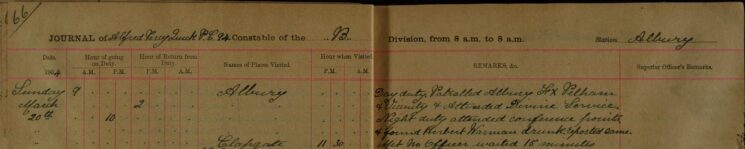 166
JOURNAL of Alfred Percy Quick P.C. 94 Constable of the "B" Division, from 8 a.m. to 8 a.m. Station Albury
Date. Hour of going on Duty. Hour of Return from Duty. Names of Places Visited. Hour when Visited. REMARKS, &c. Superior Officer's Remarks.
1904 A.M. P.M. P.M. A.M. A.M. P.M.
Sunday 9 Albury Day duty, Patrolled Albury Pelham
March 2 & Vicinity & Attended Divine Service.
20th 10 Night duty attended conference points
& found Herbert Warman drunk reported same
Clapgate 11 30 Met No Officer waited 15 minutes